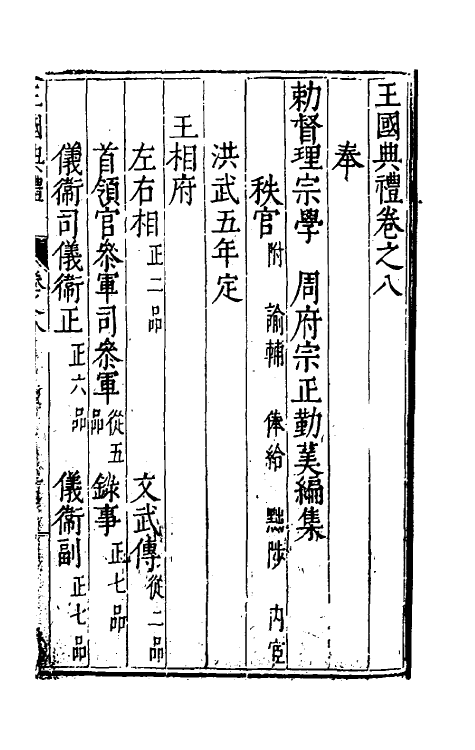 王國典禮卷之八
奉
勅督理宗學　周府宗正勤羙編集
秩官附　諭輔　俸給　黜陟　内宦
洪武五年定
王相府
左右相正二品　文武傳從二品
首領官叅軍司叅軍從五品　錄事正七品
儀衞司儀衞正正六品　儀衞副正七品
王國典禮　卷之八